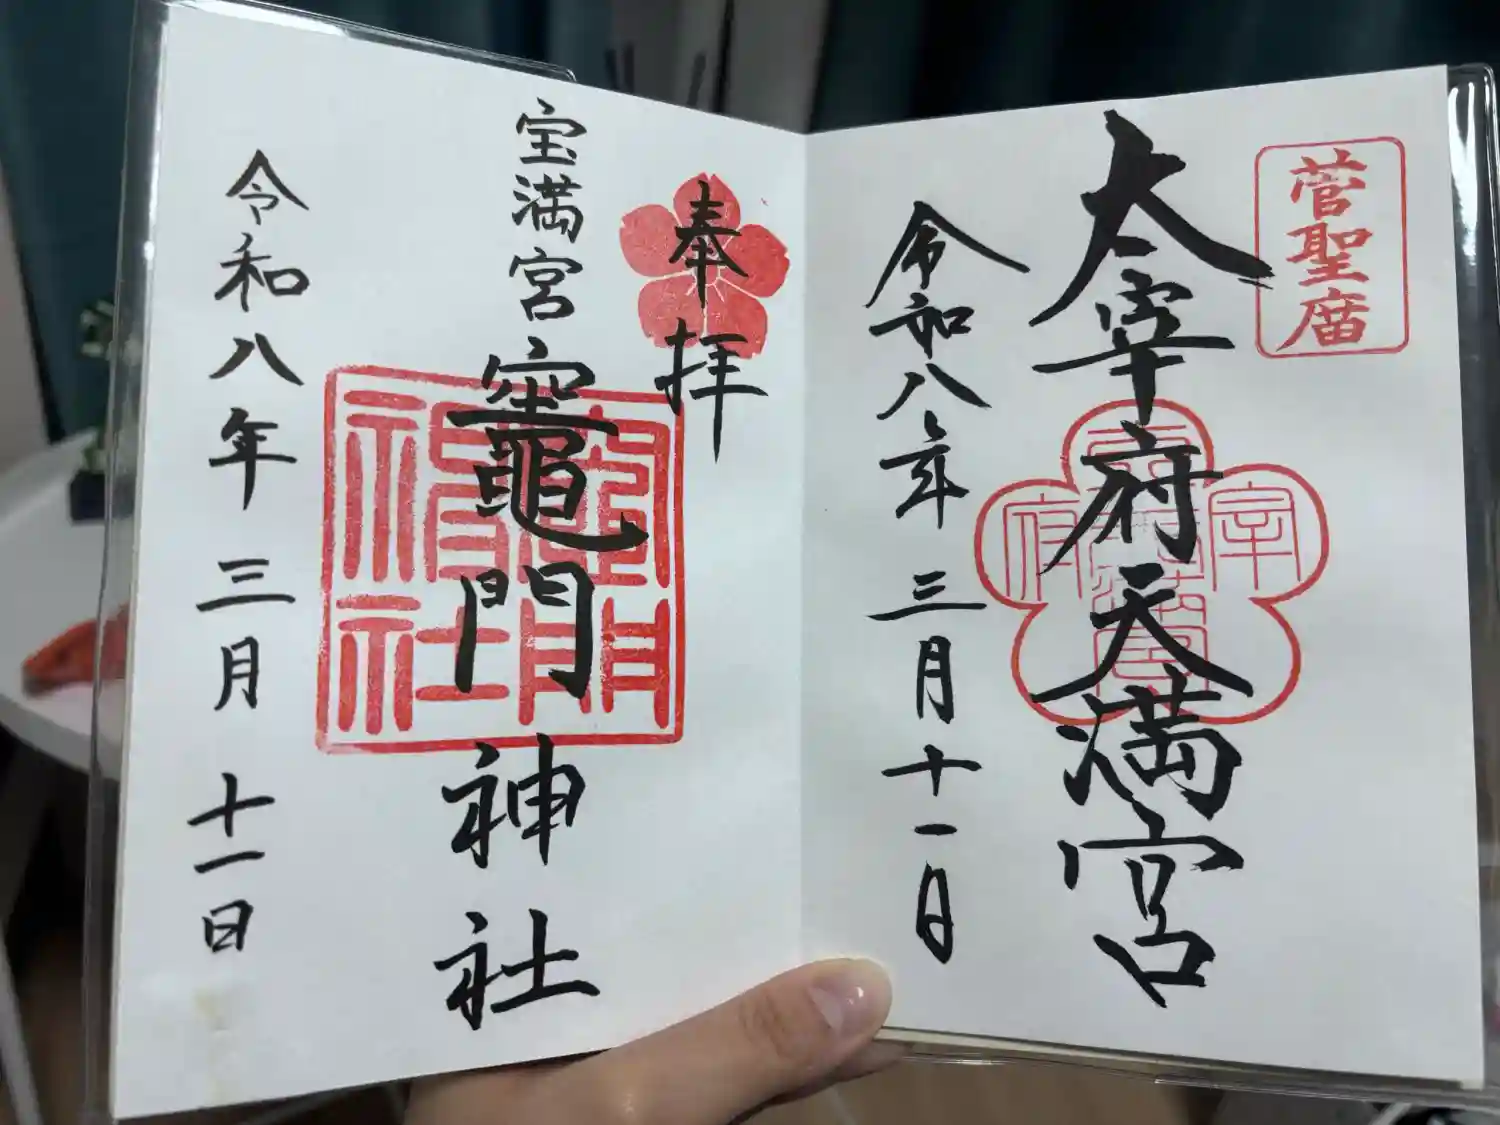 菅聖廟
太宰府天満宮
令和八年三月十一日
奉拝
宝満宮竈門神社
令和八年三月十一日
竈門
神社